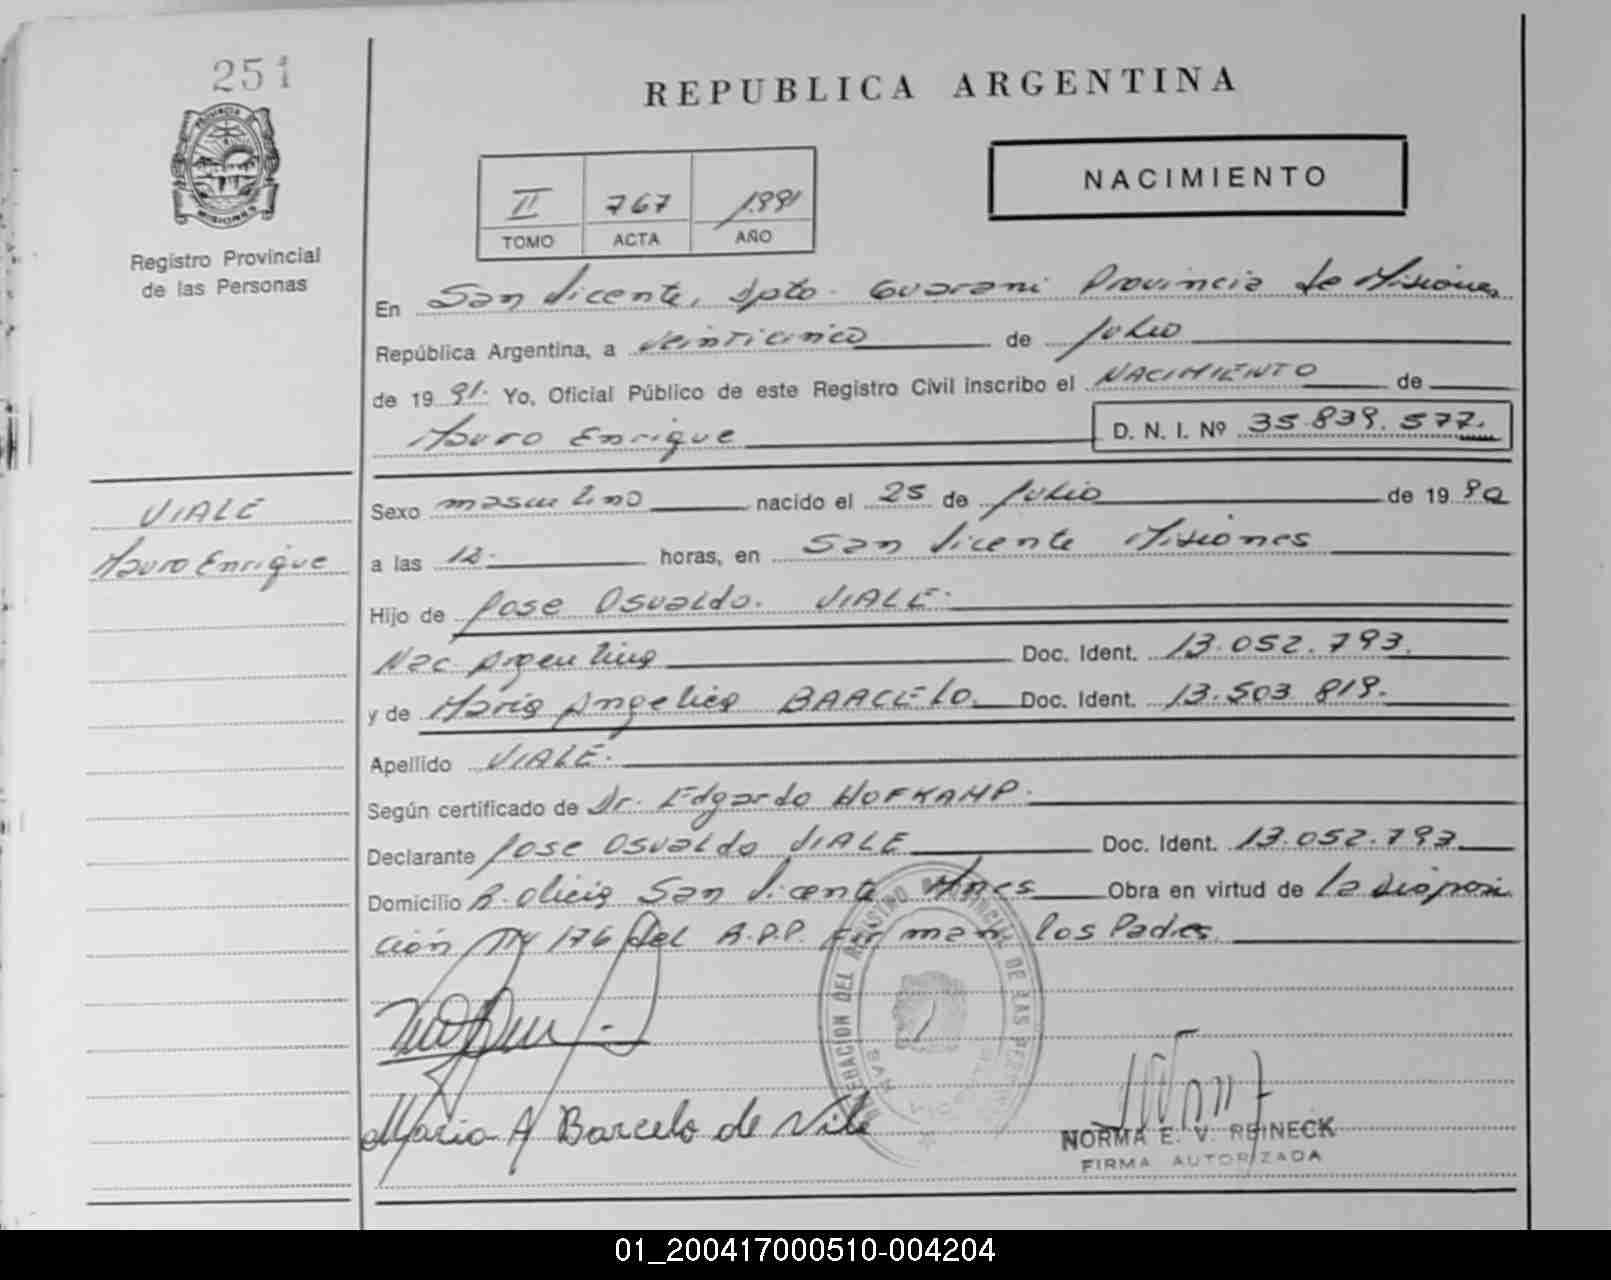 251
REPUBLICA ARGENTINA
PROVINCIA DE
MISIONES
Registro Provincial
de las Personas
II 767 1991
TOMO ACTA AÑO
NACIMIENTO
En San Vicente, Dpto. Guarani Provincia de Misiones
República Argentina, a veinticinco de Julio
de 19 91. Yo, Oficial Público de este Registro Civil inscribo el NACIMIENTO de
Mauro Enrique D. N. I. Nº 35.839.577.
VIALE
Mauro Enrique
Sexo masculino nacido el 25 de Julio de 19 90
a las 12. horas, en San Vicente Misiones
Hijo de Jose Osvaldo. VIALE.
Nac. Argentina Doc. Ident. 13.052.793.
y de Maria Angelica BAACELO. Doc. Ident. 13.503.819.
Apellido VIALE.
Según certificado de Dr. Edgardo HOFKAMP.
Declarante Jose Osvaldo VIALE Doc. Ident. 13.052.793
Domicilio San Vicente Mnes Obra en virtud de la disposi
ción Nº 176 del R.P.P. Firman los Padres.
Maria A Barcelo de Vile
NORMA E. V. REINECK
FIRMA AUTORIZADA
01_200417000510-004204